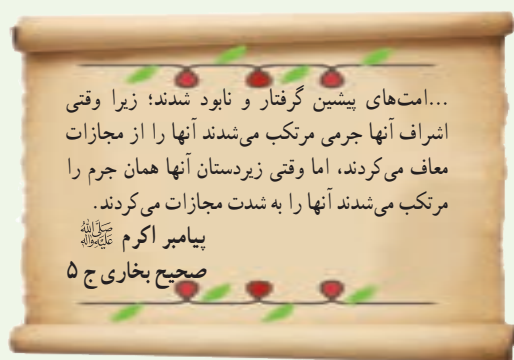 ...امت‌های پیشین گرفتار و نابود شدند؛ زیرا وقتی
اشراف آنها جرمی مرتکب می‌شدند آنها را از مجازات
معاف می‌کردند، اما وقتی زیردستان آنها همان جرم را
مرتکب می‌شدند آنها را به شدت مجازات می‌کردند.
پیامبر اکرم صلی‌الله علیه‌وآله
صحیح بخاری ج ۵